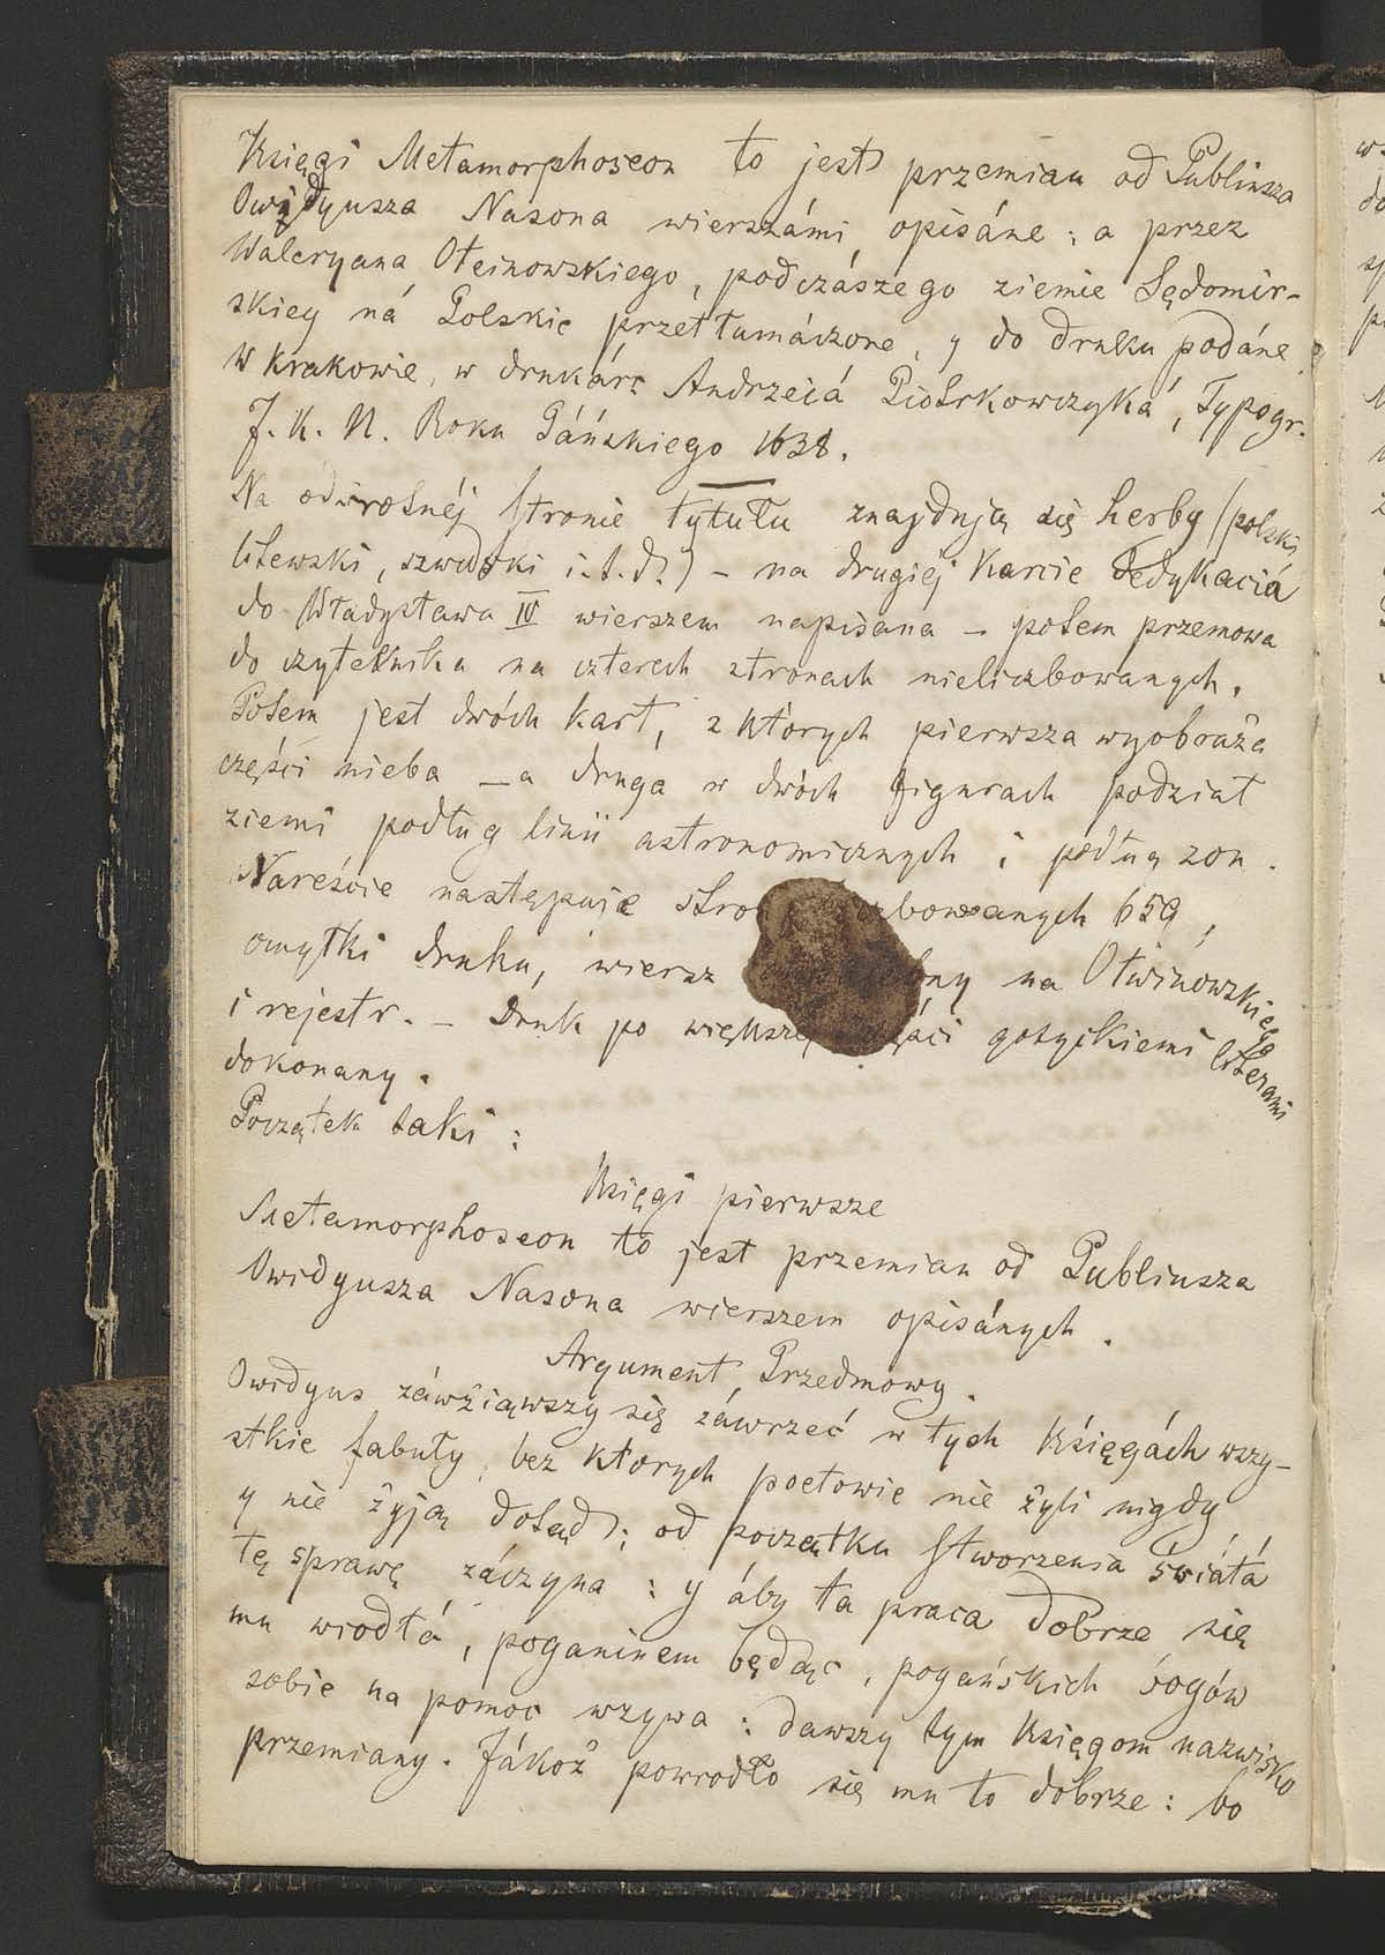 Księgi Metamorphoseon to jest przemian od Publiusza
Owidyusza Nasona wierszámi opisáne; a przez
Waleryana Oteinowskiego, podczászego ziemie Sędomir-
skiey ná Polskie przetłumáczone, y do druku podáne.
W Krakowie, w drukárz Andrzeiá Piotrkowczyká, Typogr.
J. K. M. Roku Páńskiego 1638.
Na odwrotnéj stronie tytułu znajdują się herby (polski
litewski, szwedzki i.t.d.) – na drugiéj karcie dedykaciá
do Władysława IV wierszem napisana – potem przemowa
do czytelnika na czterech stronach nieliczbowanych.
Potem jest dwóch kart, z których pierwsza wyobraża
części nieba – a druga w dwóch figurach podział
ziemi podług linii astronomicznych i podług zon.
Nareście następuje stron liczbowanych 659,
omyłki druku, wiersz na Otwinowskiego
i rejestr. – Druk po większej części gotyckiemi literami
dokonany.
Początek taki:
Księgi pierwsze
Metamorphoseon to jest przemian od Publiusza
Owidyusza Nasona wierszem opisánych.
Argument Przedmowy.
Owidyus záwziąwszy się záwrzeć w tych Księgách wszy-
stkie fabuły, bez ktorych poetowie nie żyli nigdy
y nie żyją dotąd; od początku stworzenia świátá
tę sprawę záczyna: y áby ta praca dobrze się
mu wiodłá, poganinem będąc, pogańskich bogów
sobie na pomoc wzywa: dawszy tym Księgom nazwisko
przemiany. Jákoż powiodło się mu to dobrze: bo